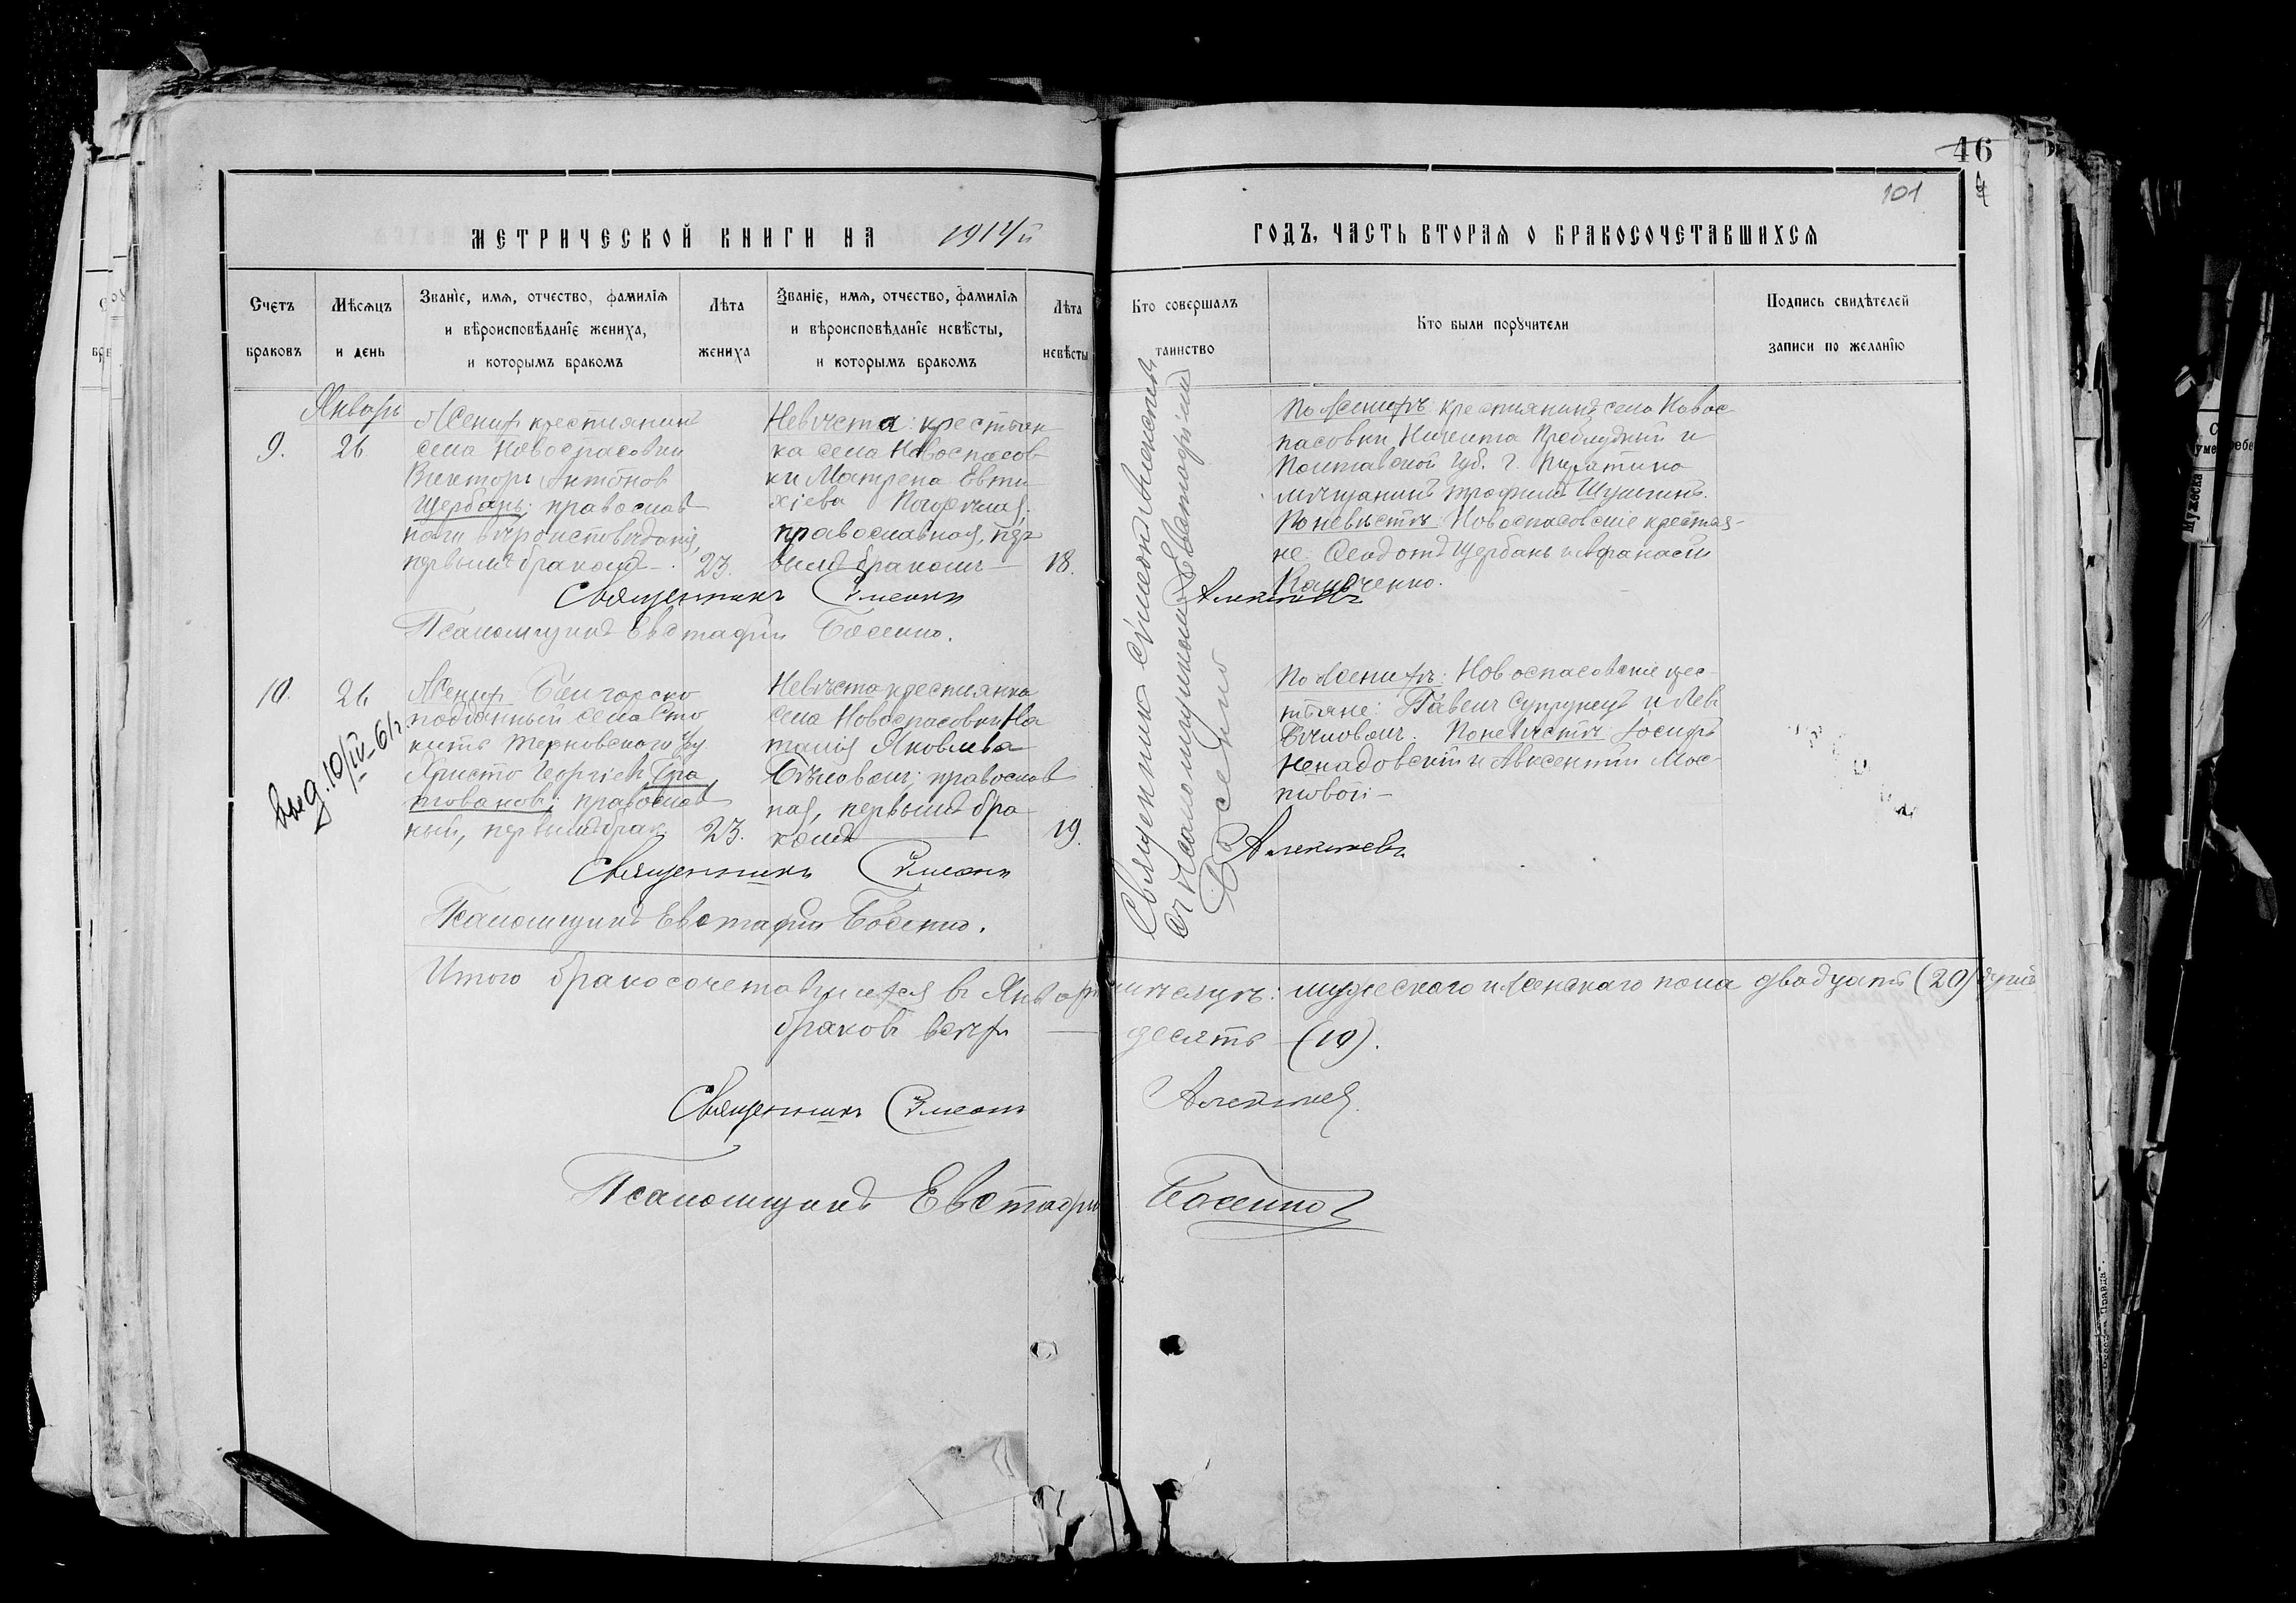 46
101
МЕТРИЧЕСКОЙ КНИГИ НА 1914й ГОДЪ, ЧАСТЬ ВТОРАЯ О БРАКОСОЧЕТАВШИХСЯ
Счетъ браковъ
Мѣсяцъ и день
Званіе, имя, отчество, фамилія
и вѣроисповѣданіе жениха,
и которымъ бракомъ
Лѣта жениха
Званіе, имя, отчество, фамилія
и вѣроисповѣданіе невѣсты,
и которымъ бракомъ
Лѣта невѣсты
Кто совершалъ таинство
Кто были поручители
Подпись свидѣтелей
записи по желанію
Январь
9.
26.
Женихъ крестьянинъ
села Новоспасовки
Викторъ Антонов
Щербань; православ
наго вѣроисповѣданія,
первымъ бракомъ
23.
Невѣста: крестьян
ка села Новоспасов
ки Матрена Евти
хіева
православная, пер
вымъ бракомъ
18.
Священник Симеонъ Алексѣевъ
съ псаломщикомъ Евстафіемъ
Босенко
По женихѣ: крестьянинъ села Новос
пасовки Никита Приблудный и
Полтавской губ. г. Пирятина
мѣщанинъ Трофимъ
По невѣстѣ: Новоспасовскіе крестья-
не: Феодотъ Щербань и Афанасій
Священникъ Симеонъ Алексѣевъ
Псаломщикъ Евстафій Босенко.
10.
26
выд. 10/IV-61г
Женихъ Болгарско
подданный села
Христо Георгіев Гра
матовановъ; православ
ный, первымъ брак.
23.
Невѣста крестьянка
села Новоспасовки На
талія Яковлева
православ
ная, первымъ бра
комъ
19.
По женихѣ: Новоспасовскіе крес-
тьяне: Павелъ Супрунецъ и Лев
По невѣстѣ: Іосифъ
Ненадовскій и Авксентій Мос-
повой
Священникъ Симеонъ Алексѣевъ
Псаломщикъ Евстафій Босенко.
Итого бракосочетавшихся въ Январѣ мѣсяцѣ: мужескаго и женскаго пола двадцать (20) душъ
браковъ всѣхъ — десять (10).
Священникъ Симеонъ Алексѣев
Псаломщикъ Евстафій Босенко